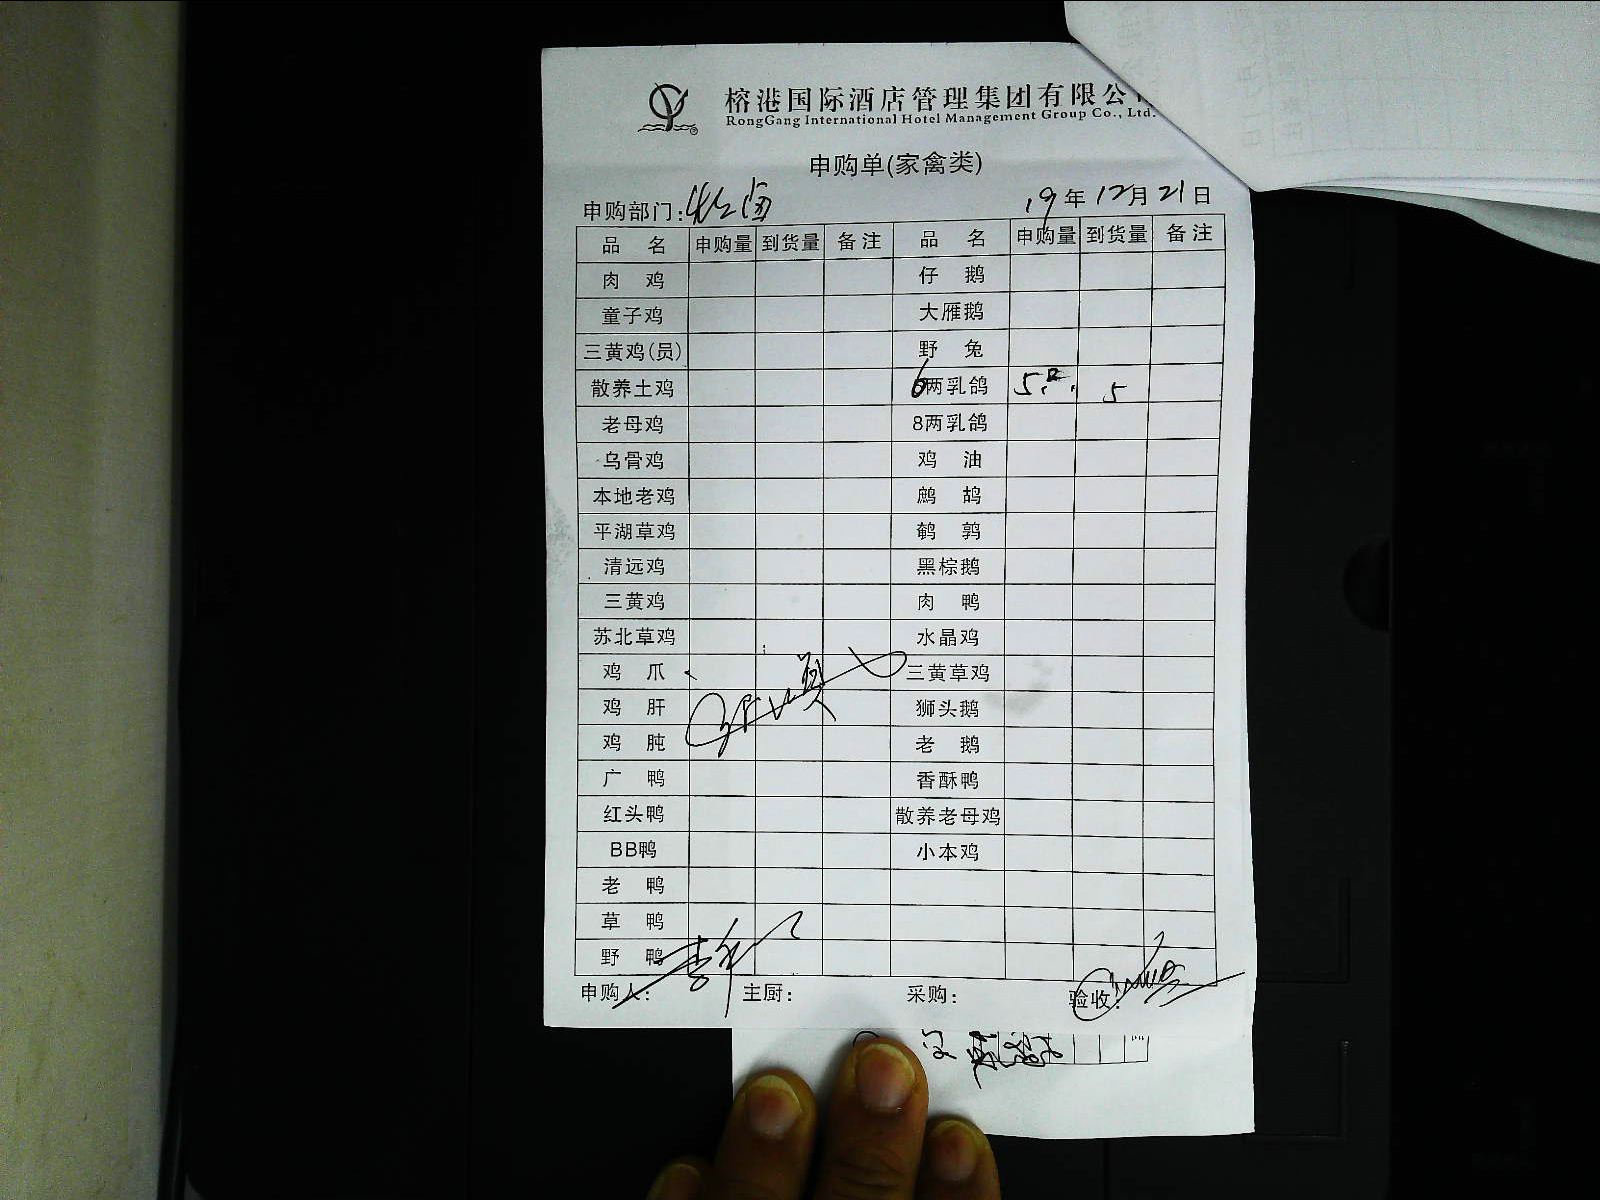 榕港国际酒店管理集团有限公
RongGang International Hotel Management Group Co., Ltd.
申购单(家禽类)
申购部门: 19年12月21日
品名 申购量 到货量 备注 品名 申购量 到货量 备注
肉鸡 仔鹅
童子鸡 大雁鹅
三黄鸡(员) 野兔
散养土鸡 6两乳鸽 5 5
老母鸡 8两乳鸽
乌骨鸡 鸡油
本地老鸡 鹧鸪
平湖草鸡 鹌鹑
清远鸡 黑棕鹅
三黄鸡 肉鸭
苏北草鸡 水晶鸡
鸡爪 三黄草鸡
鸡肝 狮头鹅
鸡肫 老鹅
广鸭 香酥鸭
红头鸭 散养老母鸡
BB鸭 小本鸡
老鸭
草鸭
野鸭
申购人: 主厨: 采购: 验收: